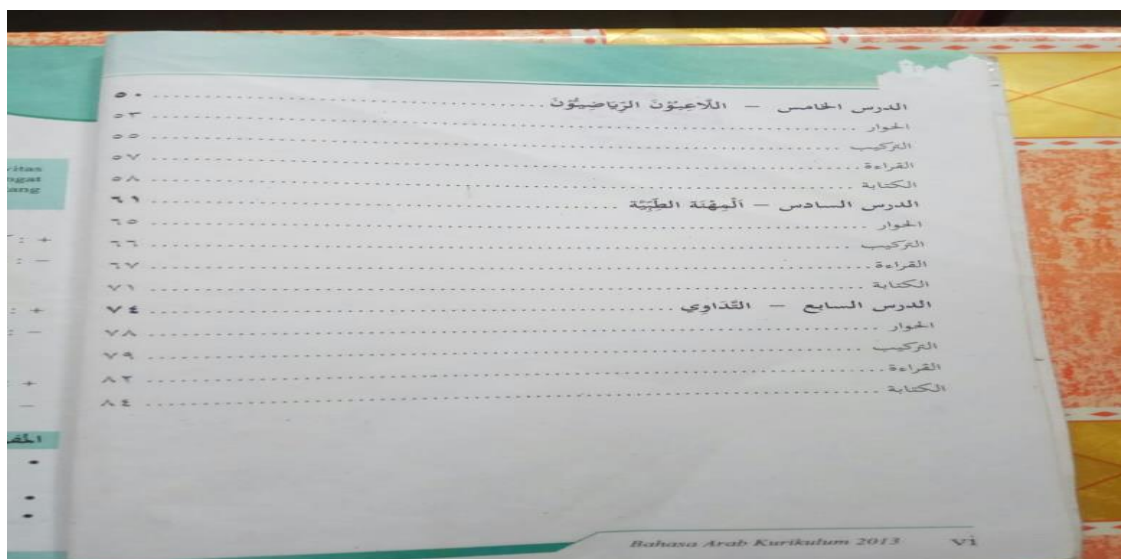 الدرس الخامس – اللَّاعِبُوْنَ الرِّيَاضِيُّوْنَ ........ ٥٠
الحوار ........ ٥٣
التركيب ........ ٥٥
القراءة ........ ٥٧
الكتابة ........ ٥٨
الدرس السادس – اَلْمِهْنَة الطِّبِّيَّة ........ ٦١
الحوار ........ ٦٥
التركيب ........ ٦٦
القراءة ........ ٦٧
الكتابة ........ ٧١
الدرس السابع – التَّدَاوِي ........ ٧٤
الحوار ........ ٧٨
التركيب ........ ٧٩
القراءة ........ ٨٢
الكتابة ........ ٨٤
Bahasa Arab Kurikulum 2013 vi